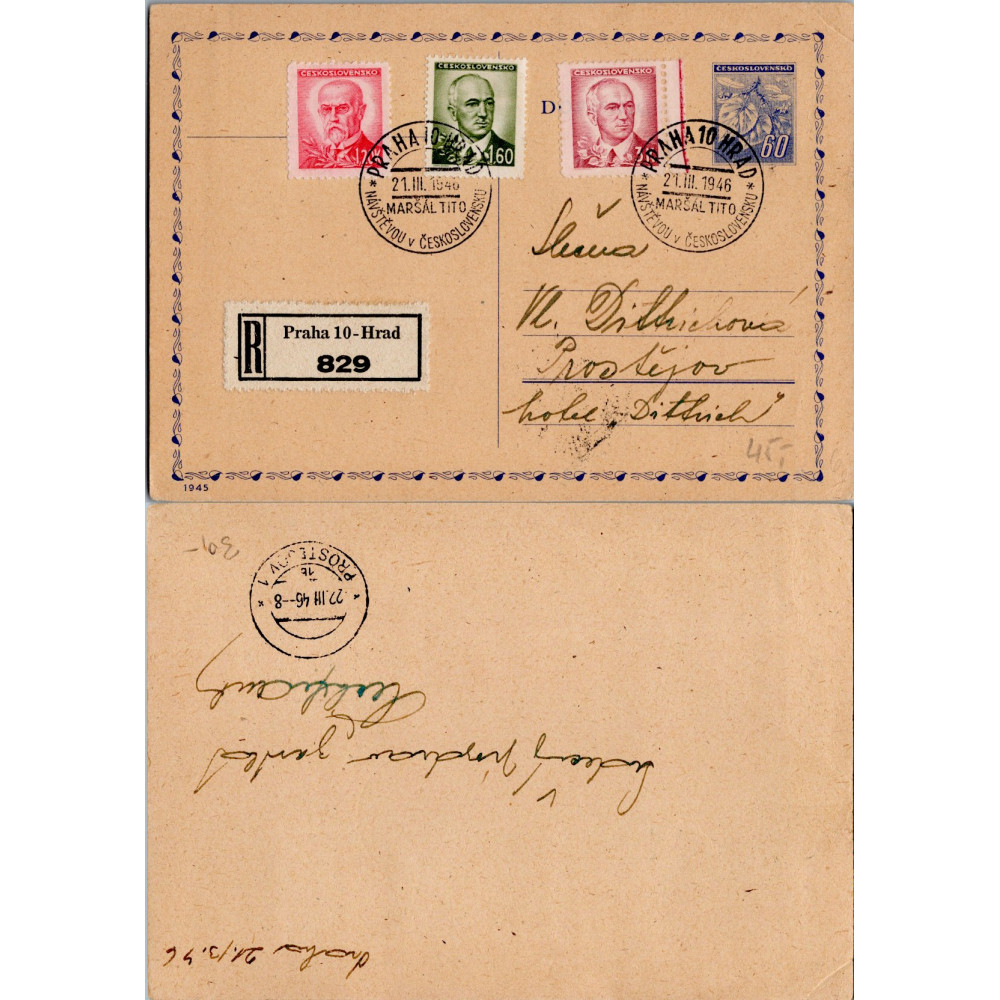 ČESKOSLOVENSKO
1.20
ČESKOSLOVENSKO
1.60
ČESKOSLOVENSKO
ČESKOSLOVENSKO
60
D
PRAHA 10-HRAD
21.III.1946
MARŠÁL TITO
* NÁVŠTĚVOU v ČESKOSLOVENSKU *
PRAHA 10 HRAD
21.III.1946
MARŠÁL TITO
* NÁVŠTĚVOU v ČESKOSLOVENSKU *
R
Praha 10-Hrad
829
Slečna
Vl. Dittrichová
Prostějov
hotel „Dittrich"
45,-
1945
30,-
PROSTĚJOV 1
1b
22.III 46--8
Srdečný pozdrav
Praha 21./3.46